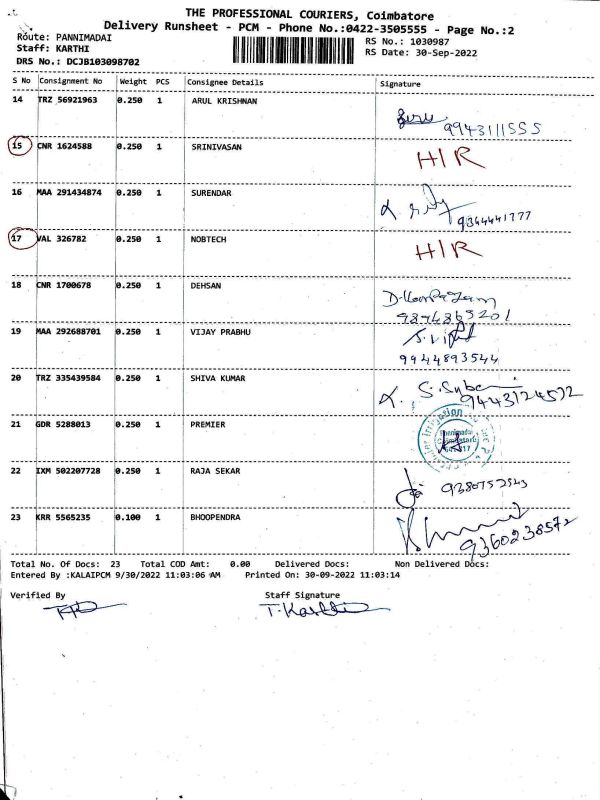 THE PROFESSIONAL COURIERS, Coimbatore
Delivery Runsheet - PCM - Phone No.:0422-3505555 - Page No.:2
Route: PANNIMADAI
Staff: KARTHI
DRS No.: DCJB103098702
RS No.: 1030987
RS Date: 30-Sep-2022
S No Consignment No Weight PCS Consignee Details Signature
14 TRZ 56921963 0.250 1 ARUL KRISHNAN
9943111555
15 CNR 1624588 0.250 1 SRINIVASAN H/R
16 MAA 291434874 0.250 1 SURENDAR
9364441777
17 VAL 326782 0.250 1 NOBTECH H/R
18 CNR 1700678 0.250 1 DEHSAN
9894865201
19 MAA 292688701 0.250 1 VIJAY PRABHU
9944893544
20 TRZ 335439584 0.250 1 SHIVA KUMAR
9443124572
21 GDR 5288013 0.250 1 PREMIER
22 IXM 502207728 0.250 1 RAJA SEKAR
9380752543
23 KRR 5565235 0.100 1 BHOOPENDRA
9360238572
Total No. Of Docs: 23 Total COD Amt: 0.00 Delivered Docs: Non Delivered Docs:
Entered By :KALAIPCM 9/30/2022 11:03:06 AM Printed On: 30-09-2022 11:03:14
Verified By Staff Signature
T. Karthi